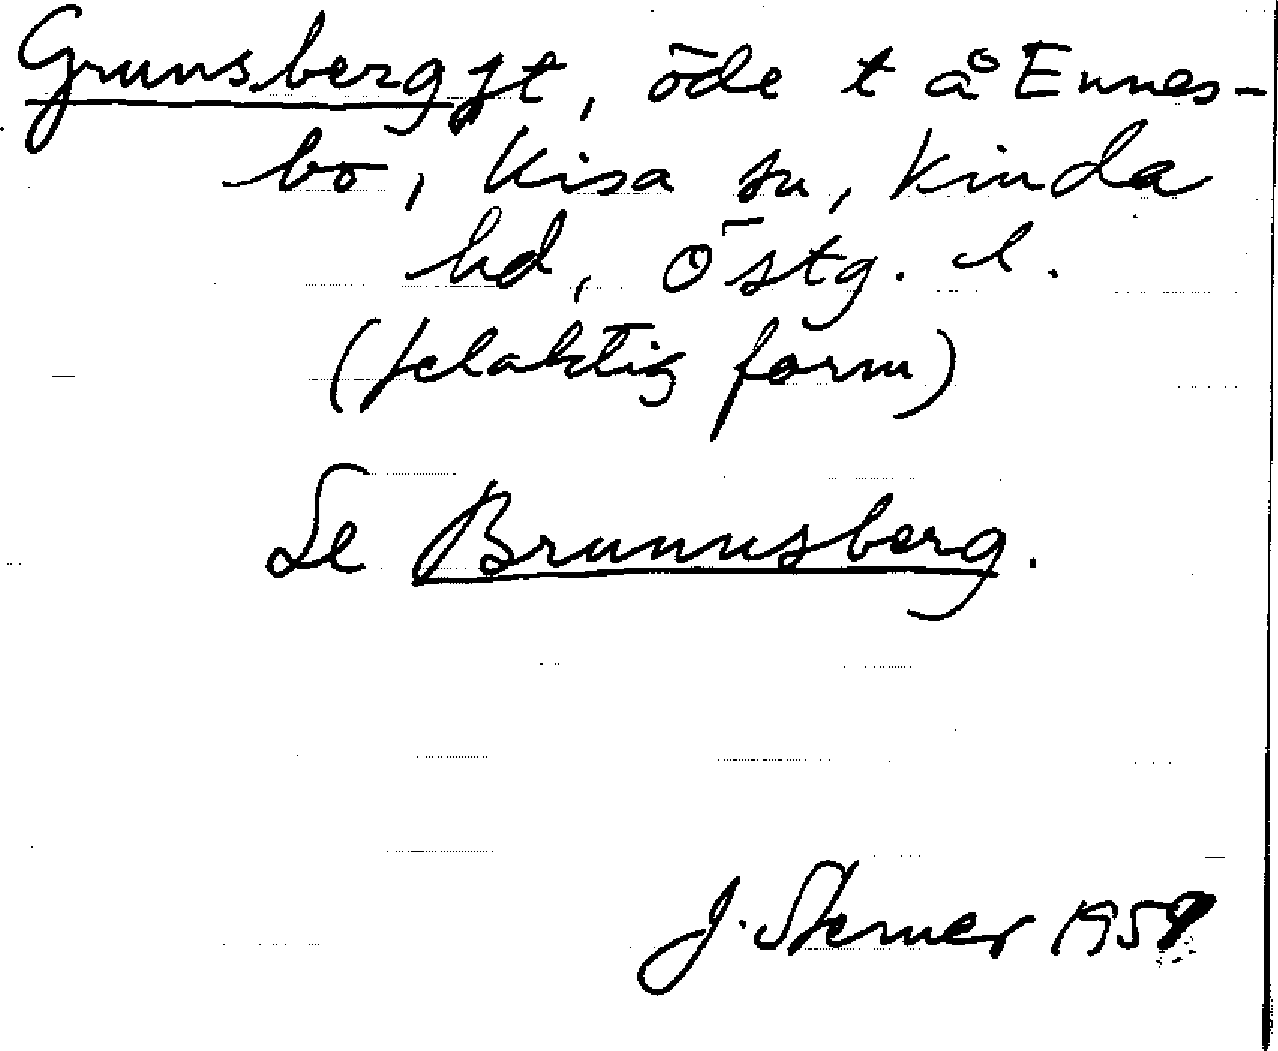 Grunsbergft, öde t å Ennes-
bo, Kisa sn, Kinda
hd, Östg. l.
(felaktig form)
Se Brunnsberg.
J. Sterner